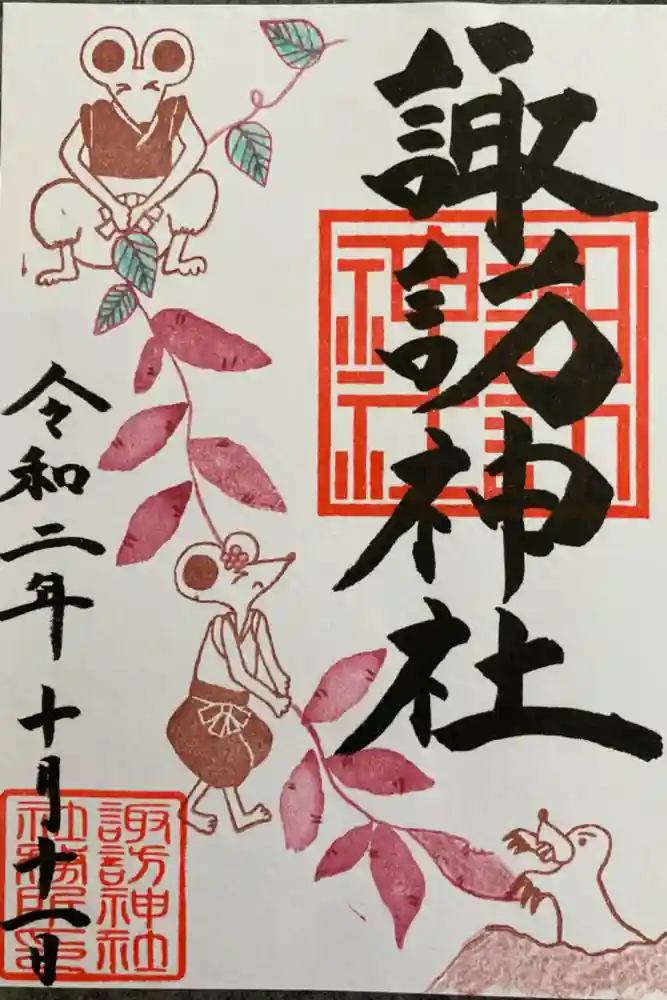 諏訪神社
令和二年十月十一日
諏訪神社
諏訪神社
社務所之印